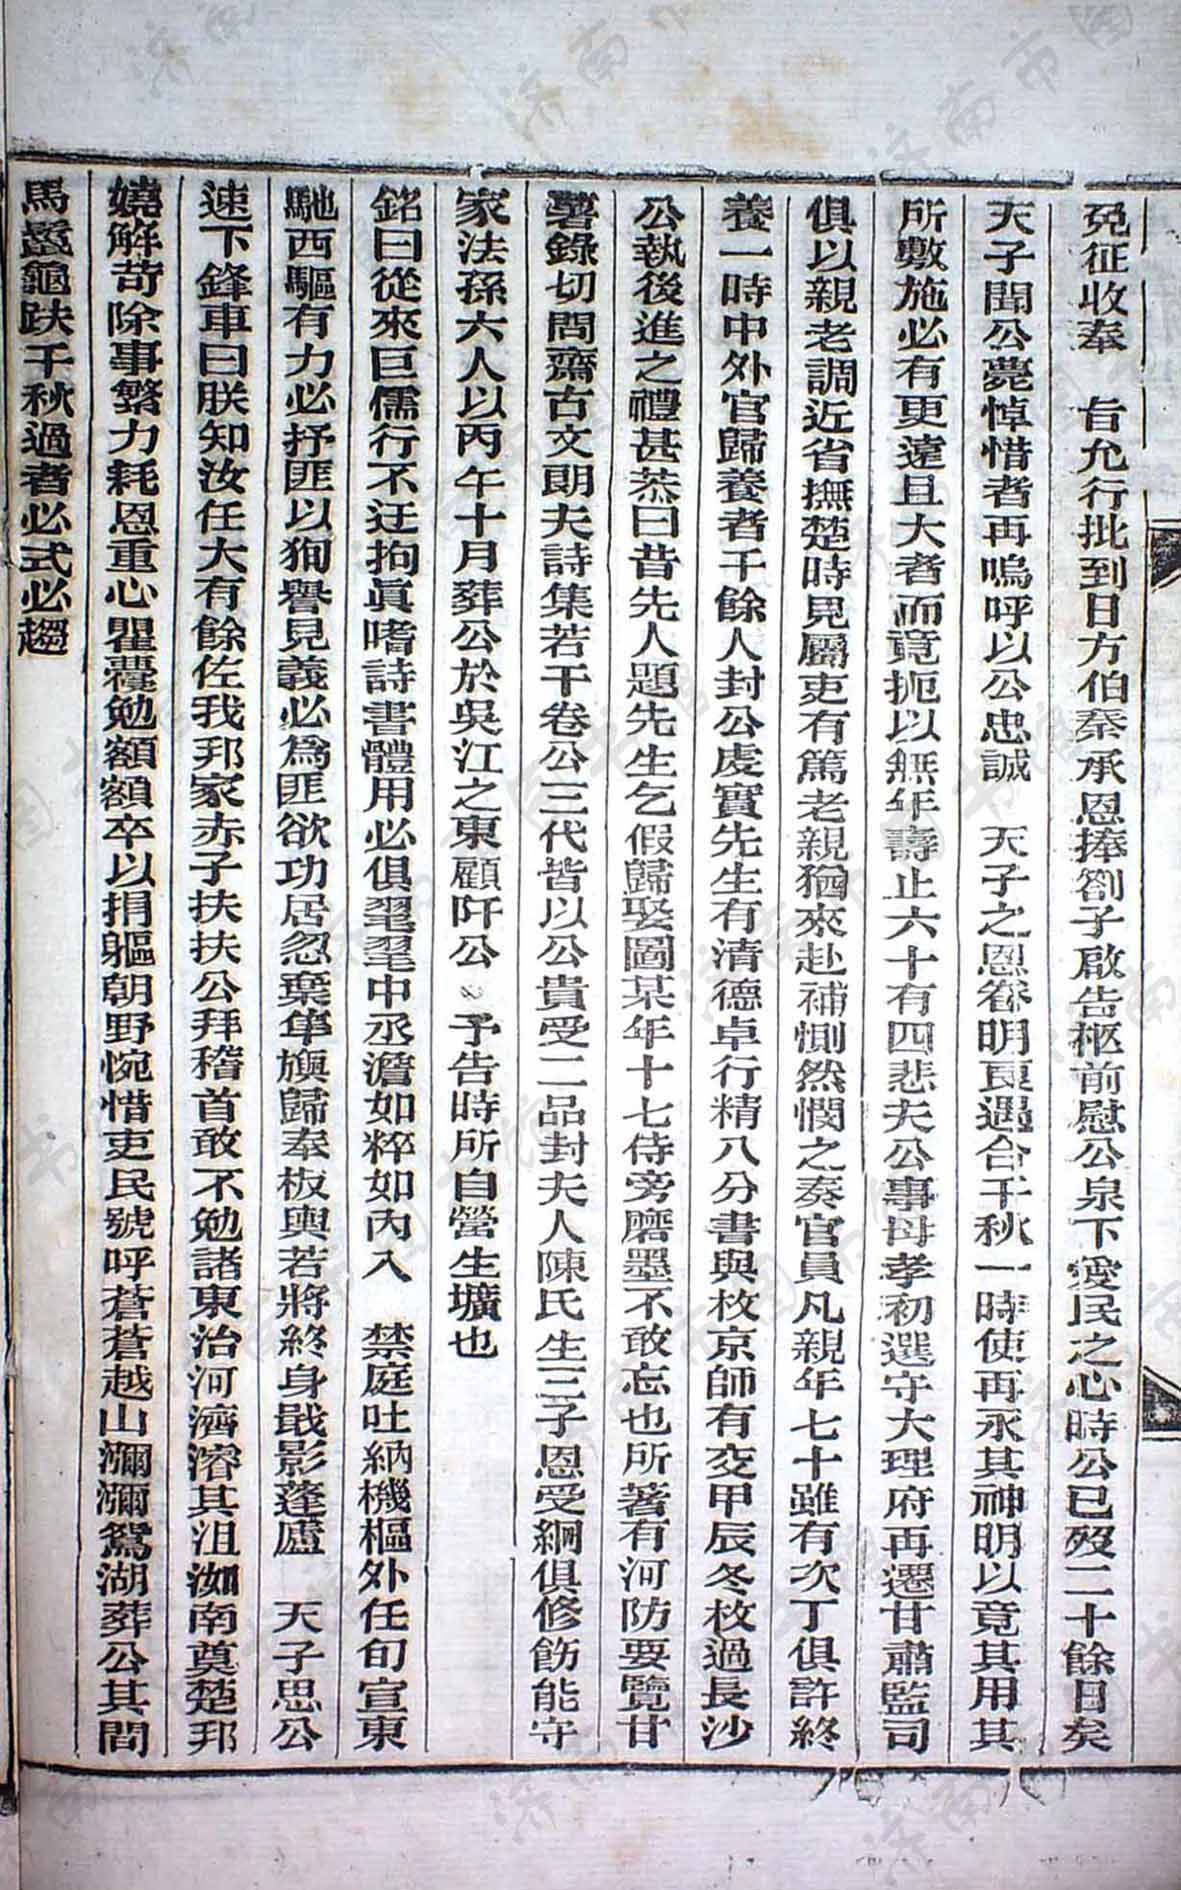 免征收奉　旨允行批到日方伯秦承恩捧劄子啟告柩前慰公泉下愛民之心時公已歿二十餘日矣
天子聞公薨悼惜者再嗚呼以公忠誠　天子之恩眷明良遇合千秋一時使再永其神明以竟其用其
所敷施必有更遠且大者而竟扼以無年壽止六十有四悲夫公事母孝初選守大理府再遷甘肅監司
俱以親老調近省撫楚時見屬吏有篤老親猶來赴補惻然憫之奏官員凡親年七十雖有次丁俱許終
養一時中外官歸養者千餘人封公虔實先生有清德卓行精八分書與枚京師有交甲辰冬枚過長沙
公執後進之禮甚恭曰昔先人題先生乞假歸娶圖某年十七侍旁磨墨不敢忘也所著有河防要覽甘
薯錄切問齋古文朗夫詩集若干卷公三代皆以公貴受二品封夫人陳氏生三子恩受綱俱修飭能守
家法孫六人以丙午十月葬公於吳江之東顧阡公　予告時所自營生壙也
銘曰從來巨儒行不迂拘眞嗜詩書體用必俱翟翟中丞澹如粹如內入　禁庭吐納機樞外任旬宣東
馳西驅有力必抒匪以狥譽見義必為匪欲功居忽棄隼旟歸奉板輿若將終身戢影蓬廬　天子思公
速下鋒車曰朕知汝任大有餘佐我邦家赤子扶扶公拜稽首敢不勉諸東治河濟濬其沮洳南奠楚邦
嬈解苛除事繁力耗恩重心瞿囊勉額額卒以捐軀朝野惋惜吏民號呼蒼蒼越山瀰瀰鴛湖葬公其間
馬鬣龜趺千秋過者必式必趨